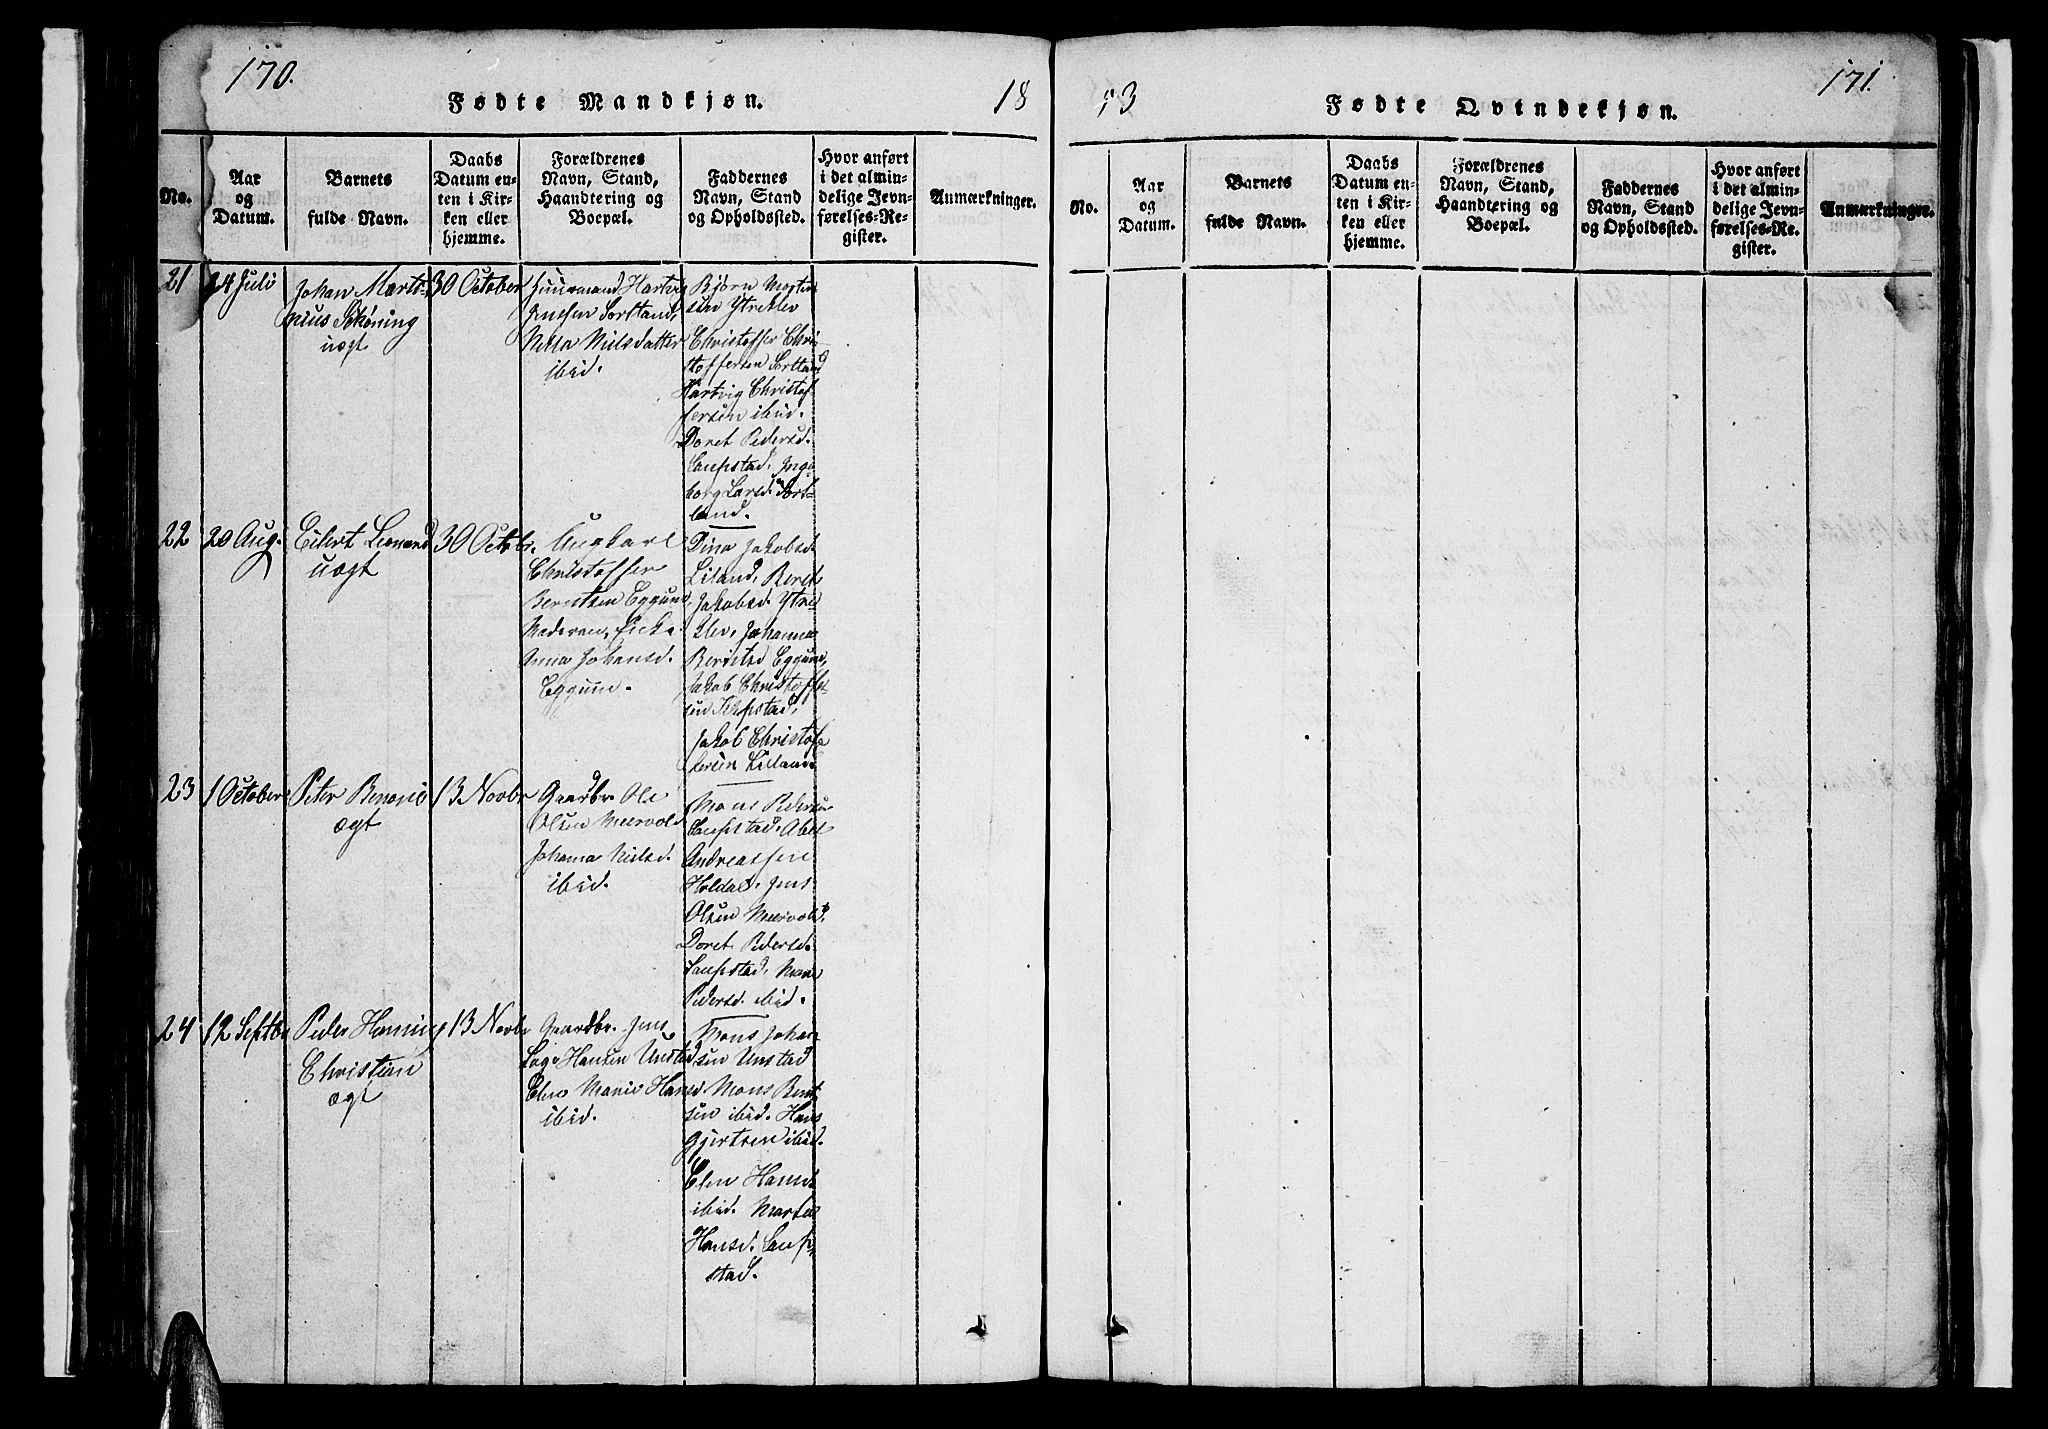 170.
Fødte Mandkjøn.
18
No.
Aar
og
Datum.
Barnets
fulde Navn.
Daabs
Datum en-
ten i Kir-
ken eller
hjemme.
Forældrenes
Navn, Stand,
Haandtering og
Boepæl.
Faddernes
Navn, Stand
og Opholdssted.
Hvor anført
i det almin-
delige Jevn-
førelses-Re-
gister.
Anmærkninger.
21
24 Juli
Johan Marti-
nius Schøning
uægt
30 October
Huusmand Hartvig
Jensen Sortland,
Nilsdatter
ibid.
Bjørn Morten
sen Ytreklev
Christoffer Chri-
stoffersen Sortland
Hartvig Christof
fersen ibid.
Doret Pedersd.
Laupstad, Inge
borg Larsd. Sort-
land.
22
20 Aug.
Eilert Leonard
uægt
30 Octbr.
Ungkarl
Christoffer
Berntsen Eggum,
Moderen, Enke
Anna Johansd.
Eggum.
Dina Jakobsd.
Liland, Beret
Jakobsd. Ytre
klev, Johanna
Berntsd Eggum,
Jakob Christoffer
sen
Jakob Christof
fersen Liland
23
1 October
Peter Benonie
ægt
13 Novbr
Gaardbr. Ole
Olsen Meervold
Johanna Nielsd.
ibid.
Mons Pedersen
Laupstad, Abel
Andreassen
Holdal, Jens
Olsen Meervold,
Doret Pedersd.
Laupstad,
Pedersd. ibid.
24
12 Septbr
Peder Hening
Christian
ægt
13 Novbr
Gaardbr. Jens
Hansen Unstad
Elen Marie Hansd.
ibid.
Mons Johan-
sen Unstad
Mons Bernt
sen ibid. Hans
Gjertsen ibid.
Elen Hansd
ibid. Marta
Hansd. Laup-
stad.
171.
Fødte Qvindekjøn.
13
No.
Aar
og
Datum.
Barnets
fulde Navn.
Daabs
Datum en-
ten i Kir-
ken eller
hjemme.
Forældrenes
Navn, Stand,
Haandtering og
Boepæl.
Faddernes
Navn, Stand
og Opholdssted.
Hvor anført
i det almin-
delige Jevn-
førelses-Re-
gister.
Anmærkninger.